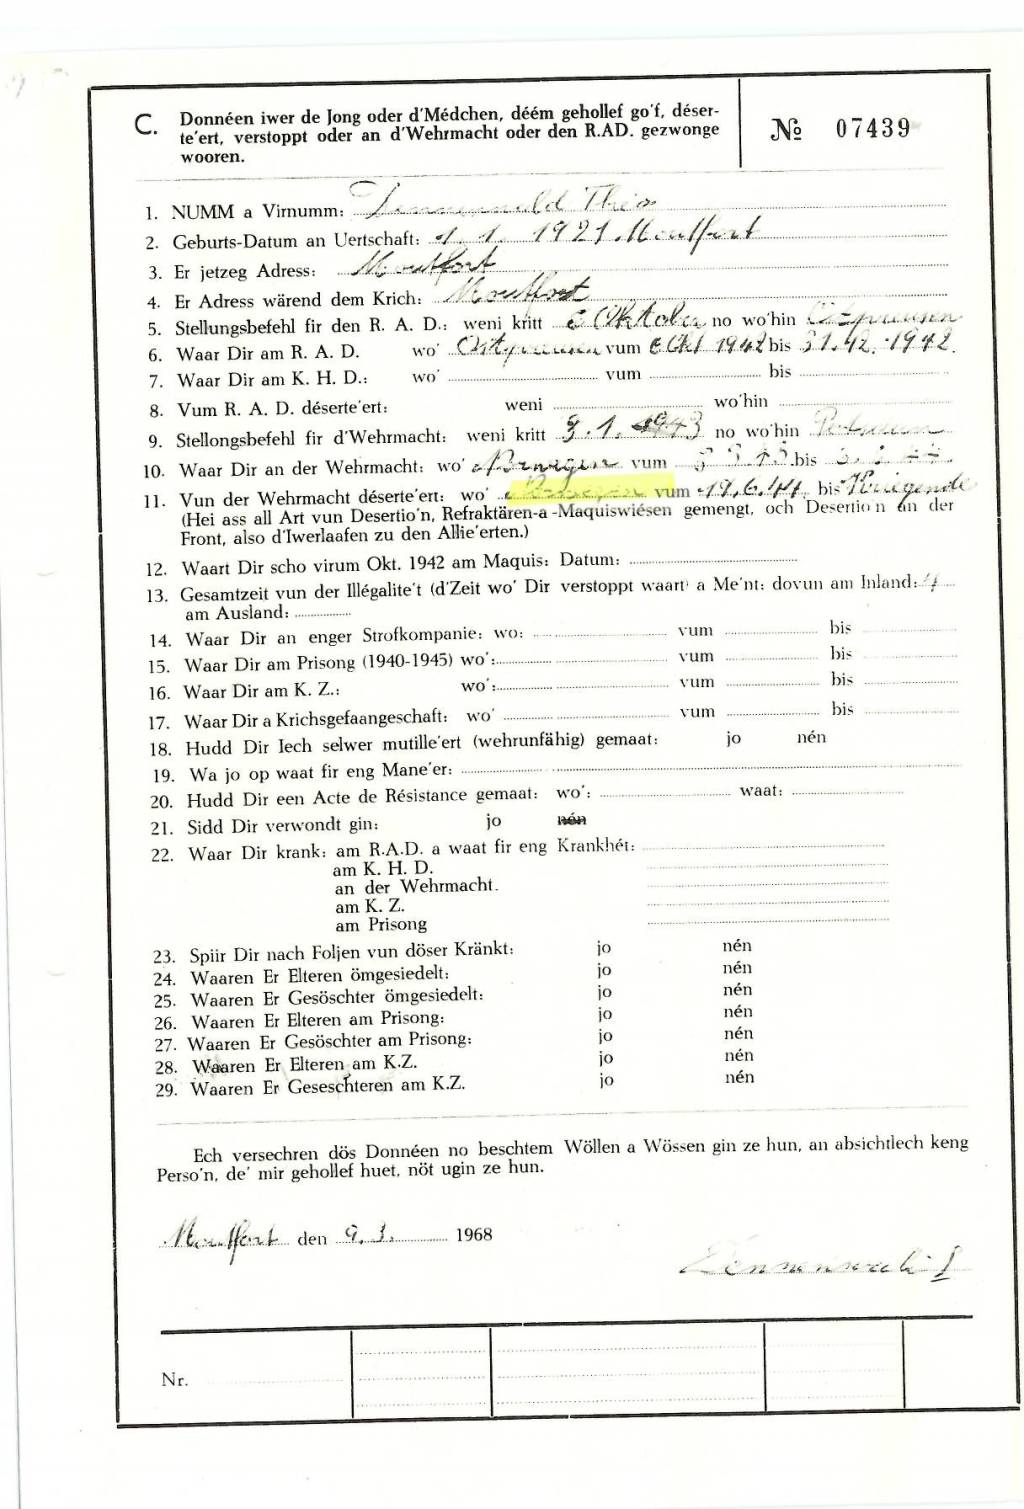 C. Donnéen iwer de Jong oder d'Médchen, déém gehollef go'f, déser-
te'ert, verstoppt oder an d'Wehrmacht oder den R.AD. gezwonge
wooren.
№ 07439
1. NUMM a Virnumm: Théo
2. Geburts-Datum an Uertschaft: 1. 1. 1921 Moutfort
3. Er jetzeg Adress: Moutfort
4. Er Adress wärend dem Krich: Moutfort
5. Stellungsbefehl fir den R. A. D.: weni kritt Oktober no wo'hin Ostpreusen
6. Waar Dir am R. A. D. wo' Ostpreusen vum Okt 1942 bis 31.12.1942.
7. Waar Dir am K. H. D.: wo' vum bis
8. Vum R. A. D. déserte'ert: weni wo'hin
9. Stellongsbefehl fir d'Wehrmacht: weni kritt 3.1.1943 no wo'hin
10. Waar Dir an der Wehrmacht: wo' Norwegen vum bis
11. Vun der Wehrmacht déserte'ert: wo' Norwegen vum 19.6.44. bis Kriegende
(Hei ass all Art vun Desertio'n, Refraktären-a-Maquiswiésen gemengt, och Desertio'n an der
Front, also d'Iwerlaafen zu den Allie'erten.)
12. Waart Dir scho virum Okt. 1942 am Maquis: Datum:
13. Gesamtzeit vun der Illégalite't (d'Zeit wo' Dir verstoppt waart) a Me'nt: dovun am Inland:
am Ausland:
14. Waar Dir an enger Strofkompanie: wo: vum bis
15. Waar Dir am Prisong (1940-1945) wo': vum bis
16. Waar Dir am K. Z.: wo': vum bis
17. Waar Dir a Krichsgefaangeschaft: wo' vum bis
18. Hudd Dir Iech selwer mutille'ert (wehrunfähig) gemaat: jo nén
19. Wa jo op waat fir eng Mane'er:
20. Hudd Dir een Acte de Résistance gemaat: wo': waat:
21. Sidd Dir verwondt gin: jo nén
22. Waar Dir krank: am R.A.D. a waat fir eng Krankhét:
am K. H. D.
an der Wehrmacht.
am K. Z.
am Prisong
23. Spiir Dir nach Foljen vun döser Kränkt: jo nén
24. Waaren Er Elteren ömgesiedelt: jo nén
25. Waaren Er Gesöschter ömgesiedelt: jo nén
26. Waaren Er Elteren am Prisong: jo nén
27. Waaren Er Gesöschter am Prisong: jo nén
28. Waaren Er Elteren am K.Z. jo nén
29. Waaren Er Geseschteren am K.Z. jo nén
Ech versechren dös Donnéen no beschtem Wöllen a Wössen gin ze hun, an absichtlech keng
Perso'n, de' mir gehollef huet, nöt ugin ze hun.
Moutfort den 9.3. 1968
Nr.